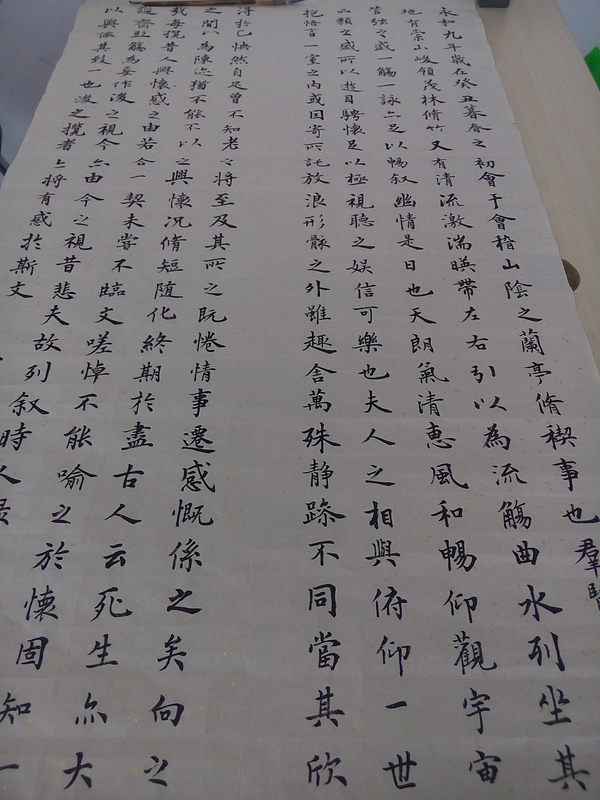 永和九年歲在癸丑暮春之初會于會稽山陰之蘭亭脩禊事也羣賢
地有崇山峻領茂林脩竹又有清流激湍暎帶左右引以為流觴曲水列坐其
管弦之盛一觴一詠亦足以暢叙幽情是日也天朗氣清惠風和暢仰觀宇宙
品類之盛所以遊目騁懷足以極視聽之娛信可樂也夫人之相與俯仰一世
抱悟言一室之内或因寄所託放浪形骸之外雖趣舍萬殊静躁不同當其欣
得於己怏然自足曾不知老之將至及其所之既惓情事遷感慨係之矣向之
之間以為陳迹猶不能不以之興懷況脩短隨化終期於盡古人云死生亦大
哉每攬昔人興懷感之由若合一契未嘗不臨文嗟悼不能喻之於懷固知一
誕齊彭殤為妄作後之視今亦由今之視昔悲夫故列叙時人
以興懷其致一也後之攬者亦將有感於斯文